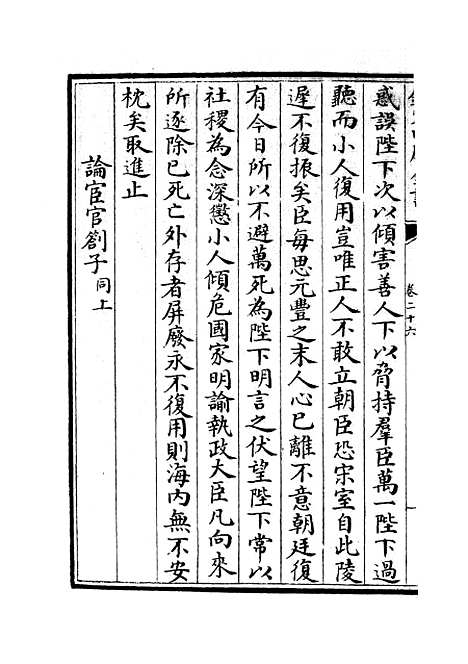 惑誤陛下次以傾害善人下以脅持羣臣萬一陛下過
聽而小人復用豈唯正人不敢立朝臣恐宋室自此陵
遲不復振矣臣每思元豐之末人心已離不意朝廷復
有今日所以不避萬死為陛下明言之伏望陛下常以
社稷為念深懲小人傾危國家明諭執政大臣凡向來
所逐除已死亡外存者屏廢永不復用則海内無不安
枕矣取進止
論宦官劄子同上
卷二十六